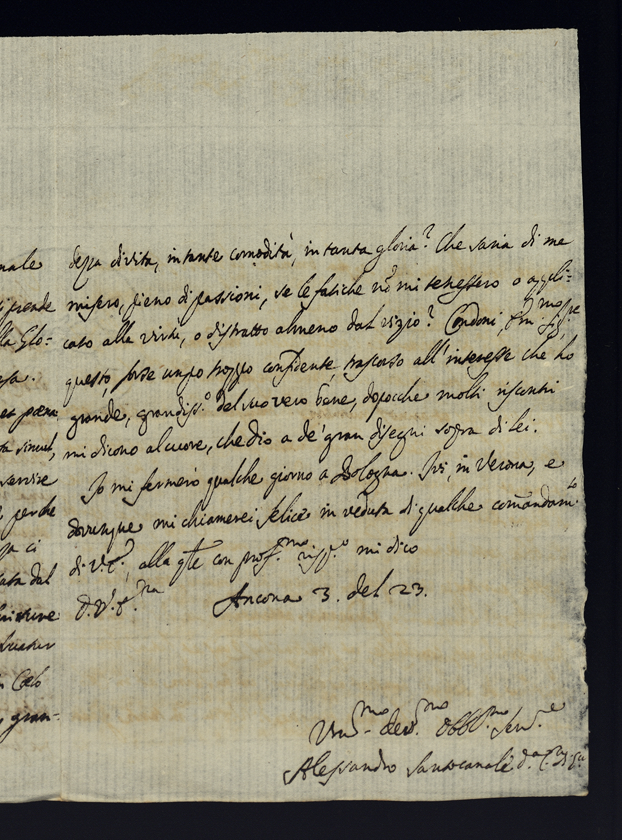 nale
prende
lla Glo-
et pœna
simul,
servire
perche
ci
dal
Cælo
gran-
dezza di vita, in tante comodità, in tanta gloria? Che saria di me
misero, pieno di passioni, se le fatiche nõ mi tenessero o appli-
cato alla virtù, o distratto almeno dal vizio? Condoni,
questo, forse un po troppo confidente, trascorso all'interesse che hò
grande, grandiss.º del suo vero bene, dopoche molti riscontri
mi dicono al cuore, che dio a de' gran disegni sopra di lei.
Io mi fermerò qualche giorno a Bologna. Ivi, in Verona, e
dovunque mi chiamerei felice in veduta di qualche comandam.to
di V.E., alla qle con prof.mo risp.o mi dico
D.V.E.za
Ancona 3. del 23.
Um.mo dev.mo obbl.mo Serv.e
Alessandro Santocanale d.a C. di Gù